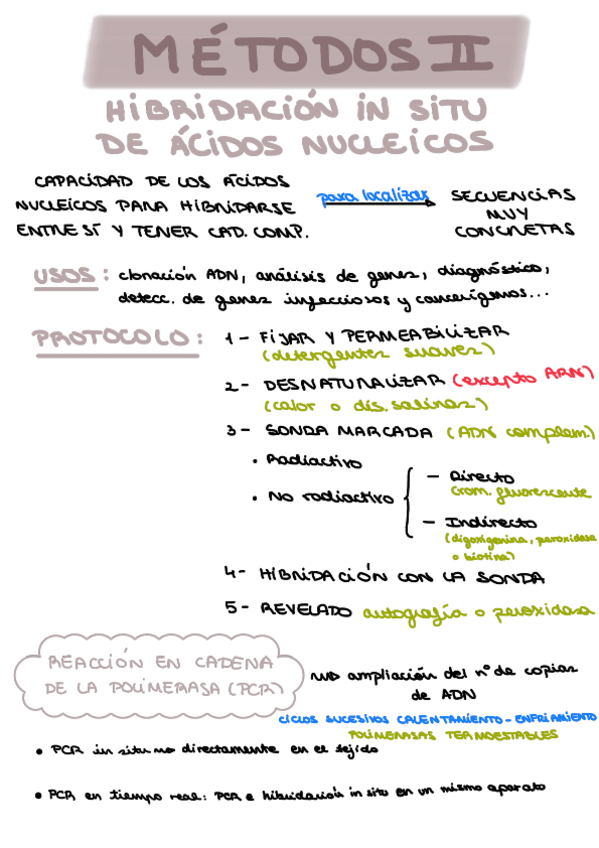 MÉTODOS II
HIBRIDACIÓN IN SITU
DE ÁCIDOS NUCLEICOS
CAPACIDAD DE LOS ÁCIDOS
NUCLEICOS PARA HIBRIDARSE
ENTRE SÍ Y TENER CAD. COMP.
para localizar
SECUENCIAS
MUY
CONCRETAS
USOS: clonación ADN, análisis de genes, diagnóstico,
detecc. de genes infecciosos y cancerígenos...
PROTOCOLO: 1- FIJAR Y PERMEABILIZAR
(detergentes suaves)
2- DESNATURALIZAR (excepto ARN)
(calor o dis. salinas)
3- SONDA MARCADA (ADN complem.)
• Radiactivo
• No radiactivo
- Directo
Crom. fluorescente
- Indirecto
(digoxigenina, peroxidasa
o biotina)
4- HIBRIDACIÓN CON LA SONDA
5- REVELADO autografía o peroxidasa
REACCIÓN EN CADENA
DE LA POLIMERASA (PCR)
ampliación del nº de copias
de ADN
CICLOS SUCESIVOS CALENTAMIENTO - ENFRIAMIENTO
POLIMERASAS TERMOESTABLES
• PCR in situ directamente en el tejido
• PCR en tiempo real: PCR e hibridación in situ en un mismo aparato